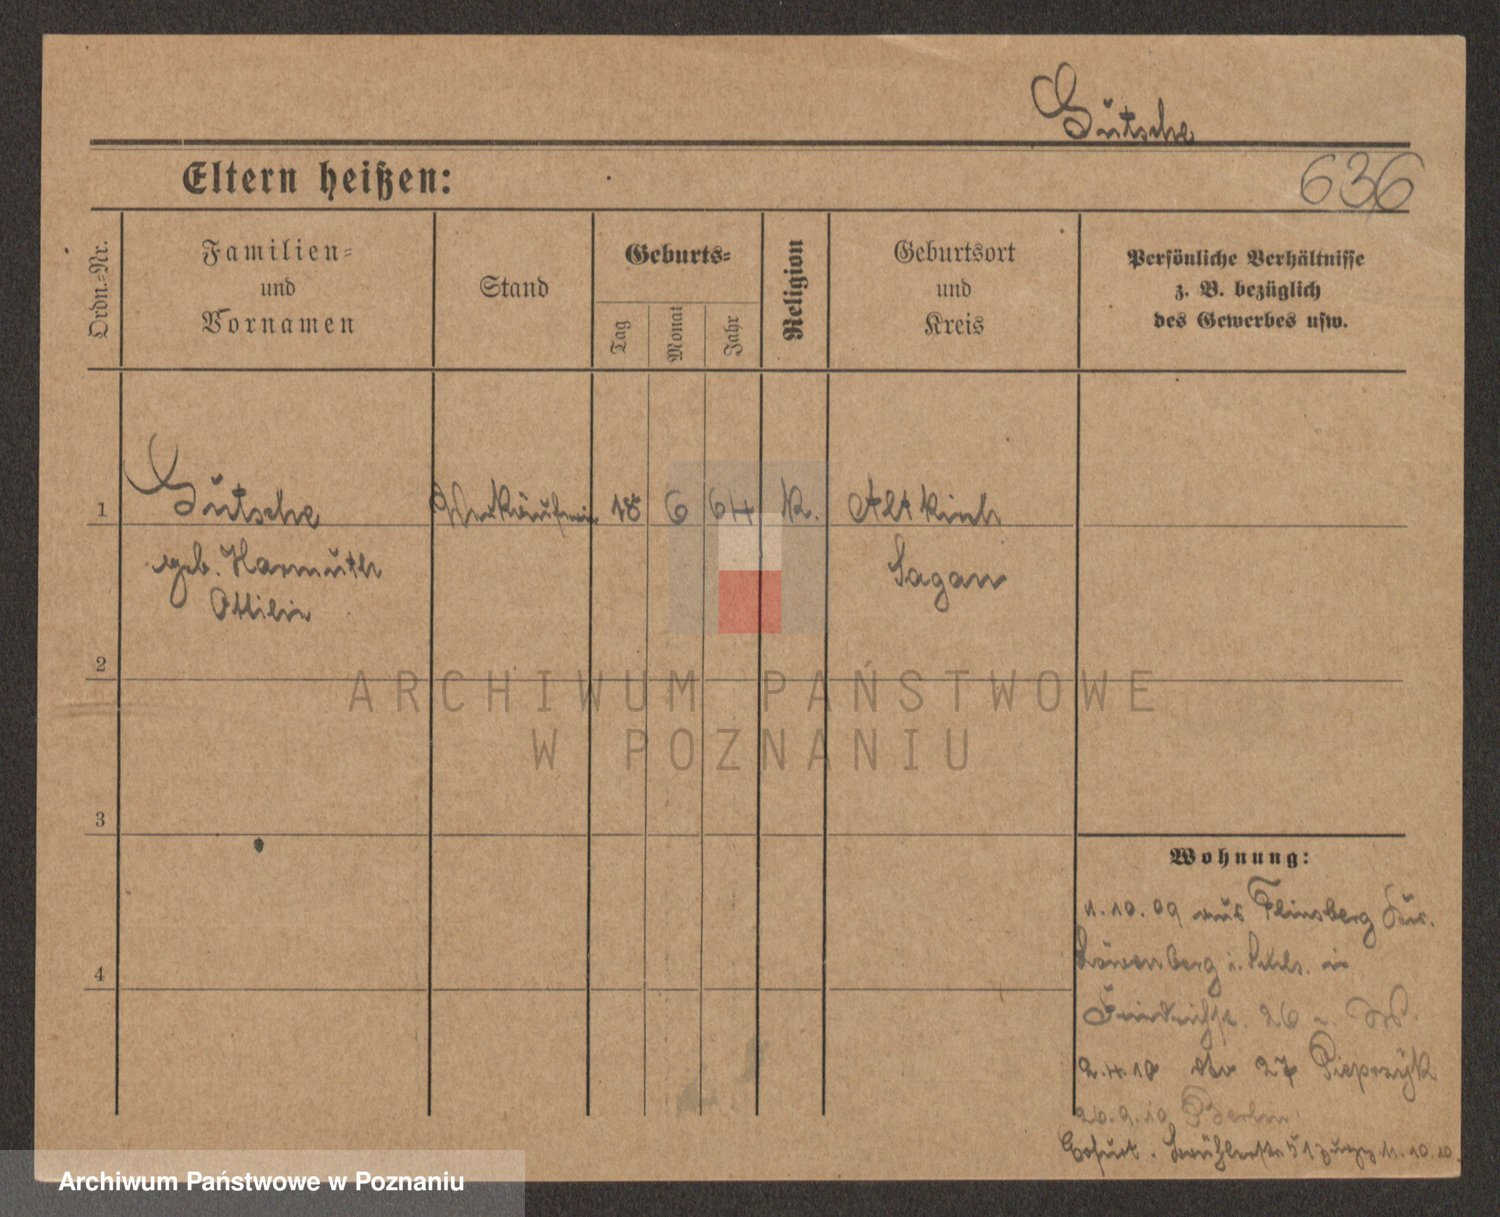 Gutsche
Eltern heißen:
636
Ordn.-Nr.
Familien-
und
Vornamen
Stand
Geburts-
Tag
Monat
Jahr
Religion
Geburtsort
und
Kreis
Persönliche Verhältnisse
z. B. bezüglich
des Gewerbes usw.
1 Gutsche 18 6 64 K. Altkirch
geb. Harmuth Sagan
Ottilie
2
ARCHIWUM PAŃSTWOWE
W POZNANIU
3
Wohnung:
1.10.09 aus Flinsberg Kr.
Löwenberg i. Schls. in
4
Friedrichstr. 26
2.4.10 dto 27 Pieprzyk
20.9.10 Berlin
Erfurt. 51 11.10.10.
Archiwum Państwowe w Poznaniu